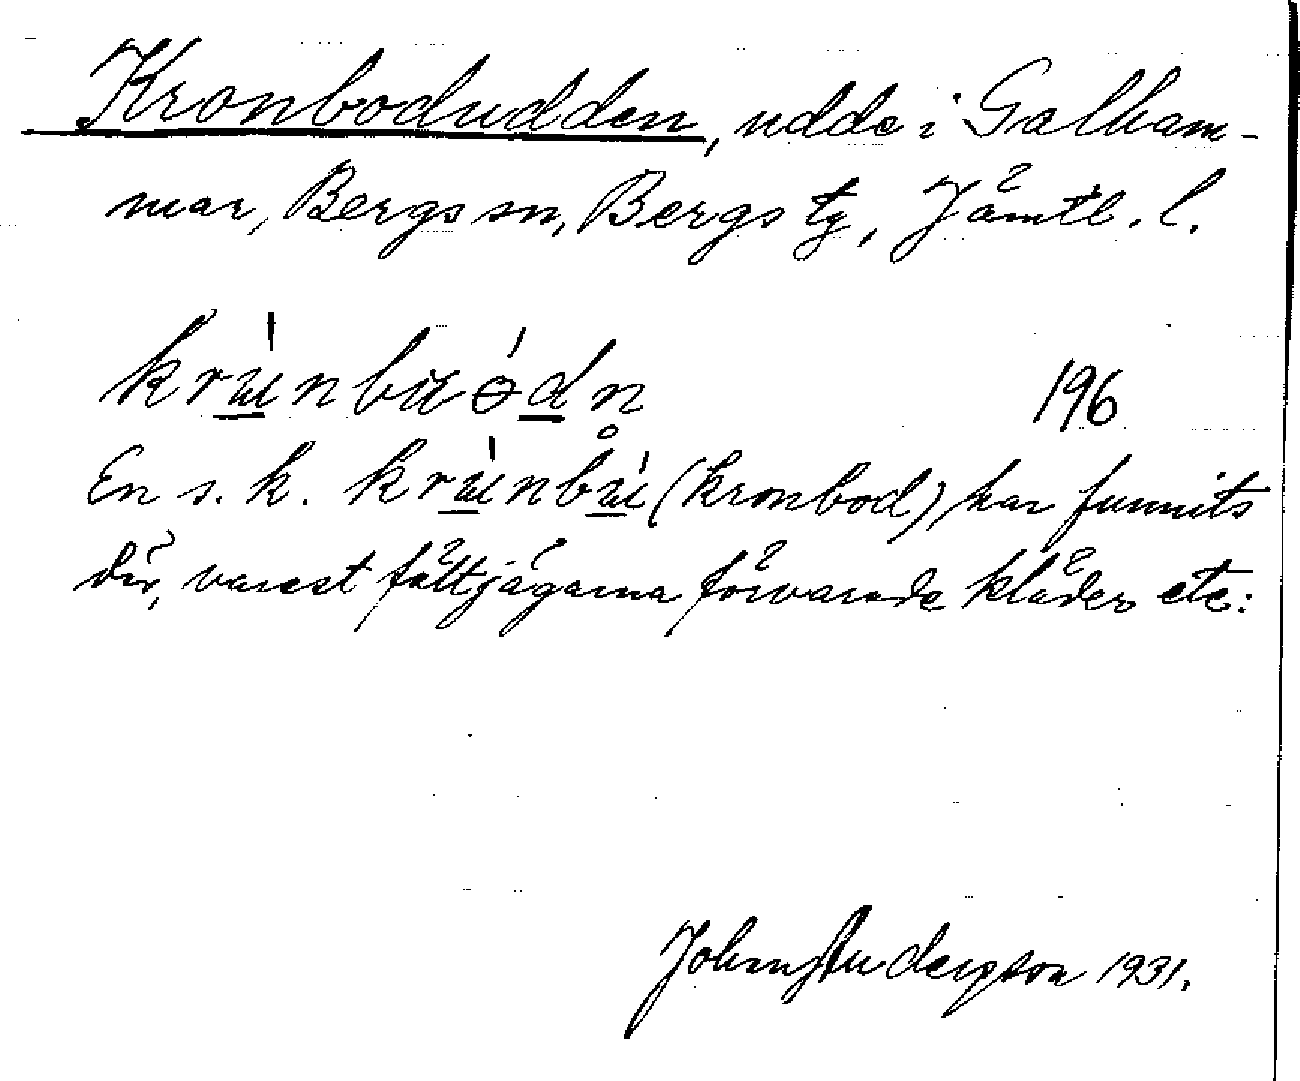 Kronbodudden, udde i Galham-
mar, Bergs sn, Bergs tg, Jämtl. l.
196
En s. k. (kronbod) har funnits
där, varest fältjägarna förvarade kläder etc:
John Andersson 1931.